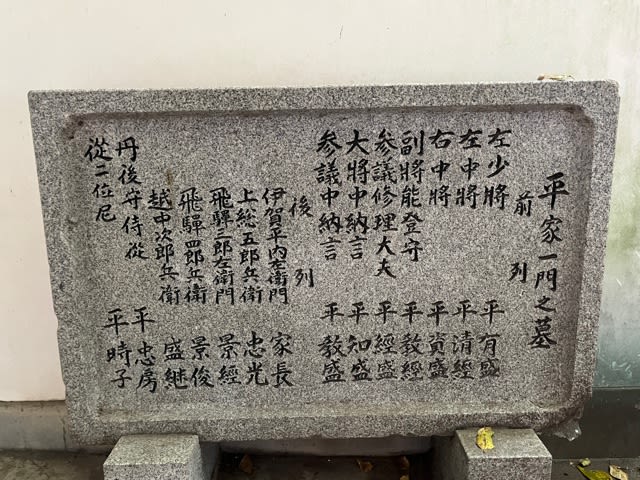 平家一門之墓
前列
左少将 平有盛
左中将 平清経
右中将 平資盛
副将能登守 平教経
参議修理大夫 平経盛
大将中納言 平知盛
参議中納言 平教盛
後列
伊賀平内左衛門 家長
上総五郎兵衛 忠光
飛騨三郎左衛門 景經
飛騨四郎兵衛 景俊
越中次郎兵衛 盛継
丹後守侍従 平忠房
從二位尼 平時子